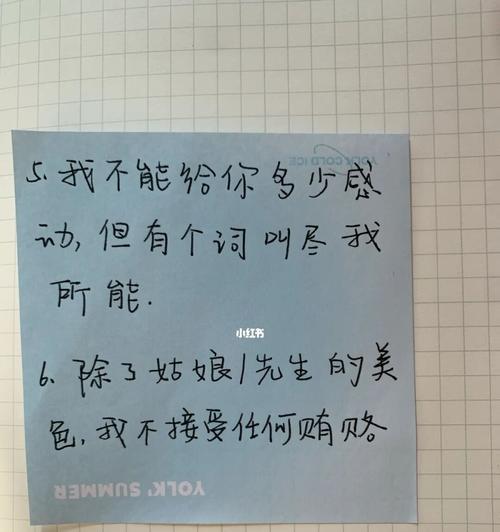 YOLK COLD ICE
5. 我不能给你多少感
动, 但有个词叫尽我
所能.
小红书
6. 除了姑娘/先生的美
色, 我不接受任何贿赂
YOLK' SUMMER